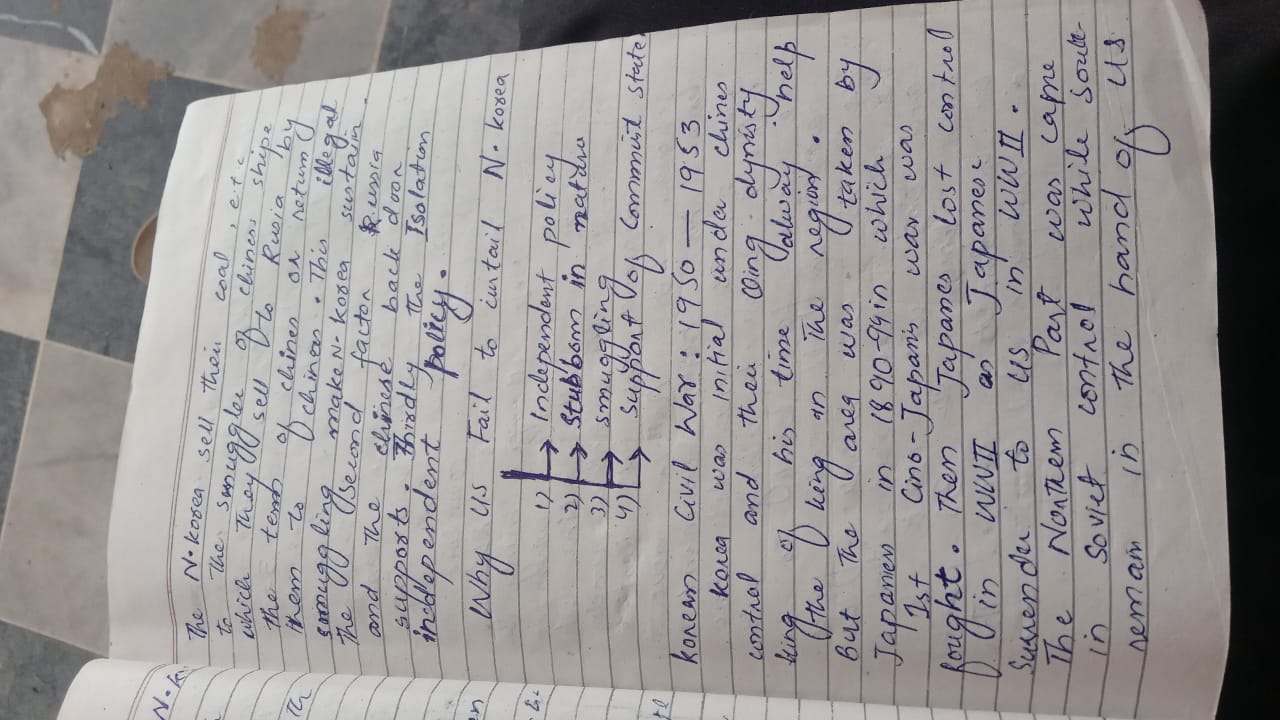 N.k
Th
en
The N.korea sell their coal, e.t.c
to the smuggler of chiness shipe
which They sell to Rusia by
the tem of chines on return
them to chiness. This illegal
smuggling make N. korea sustain.
The second factor Russia
and the chinese back door
supports. Thirdly the Isolation
independent policy.
Why US Fail to curtail N. korea
1) → Independent policy
2) → Stubborn in nature
3) → smuggling
4) → support of Commust state.
korean Civil War : 1950 — 1953
korea was initial under chines
control and their Qing dynisty
king of his time alway help
the king in The region.
But The area was taken by
Japanies in 1890-99 in which
1st Cino-Japanis war was
fought. Then Japanes lost control
in WWII as Japanese
Surrender to US in WWII.
The Northern Part was came
in Soviet control while South
remain in the hand of US